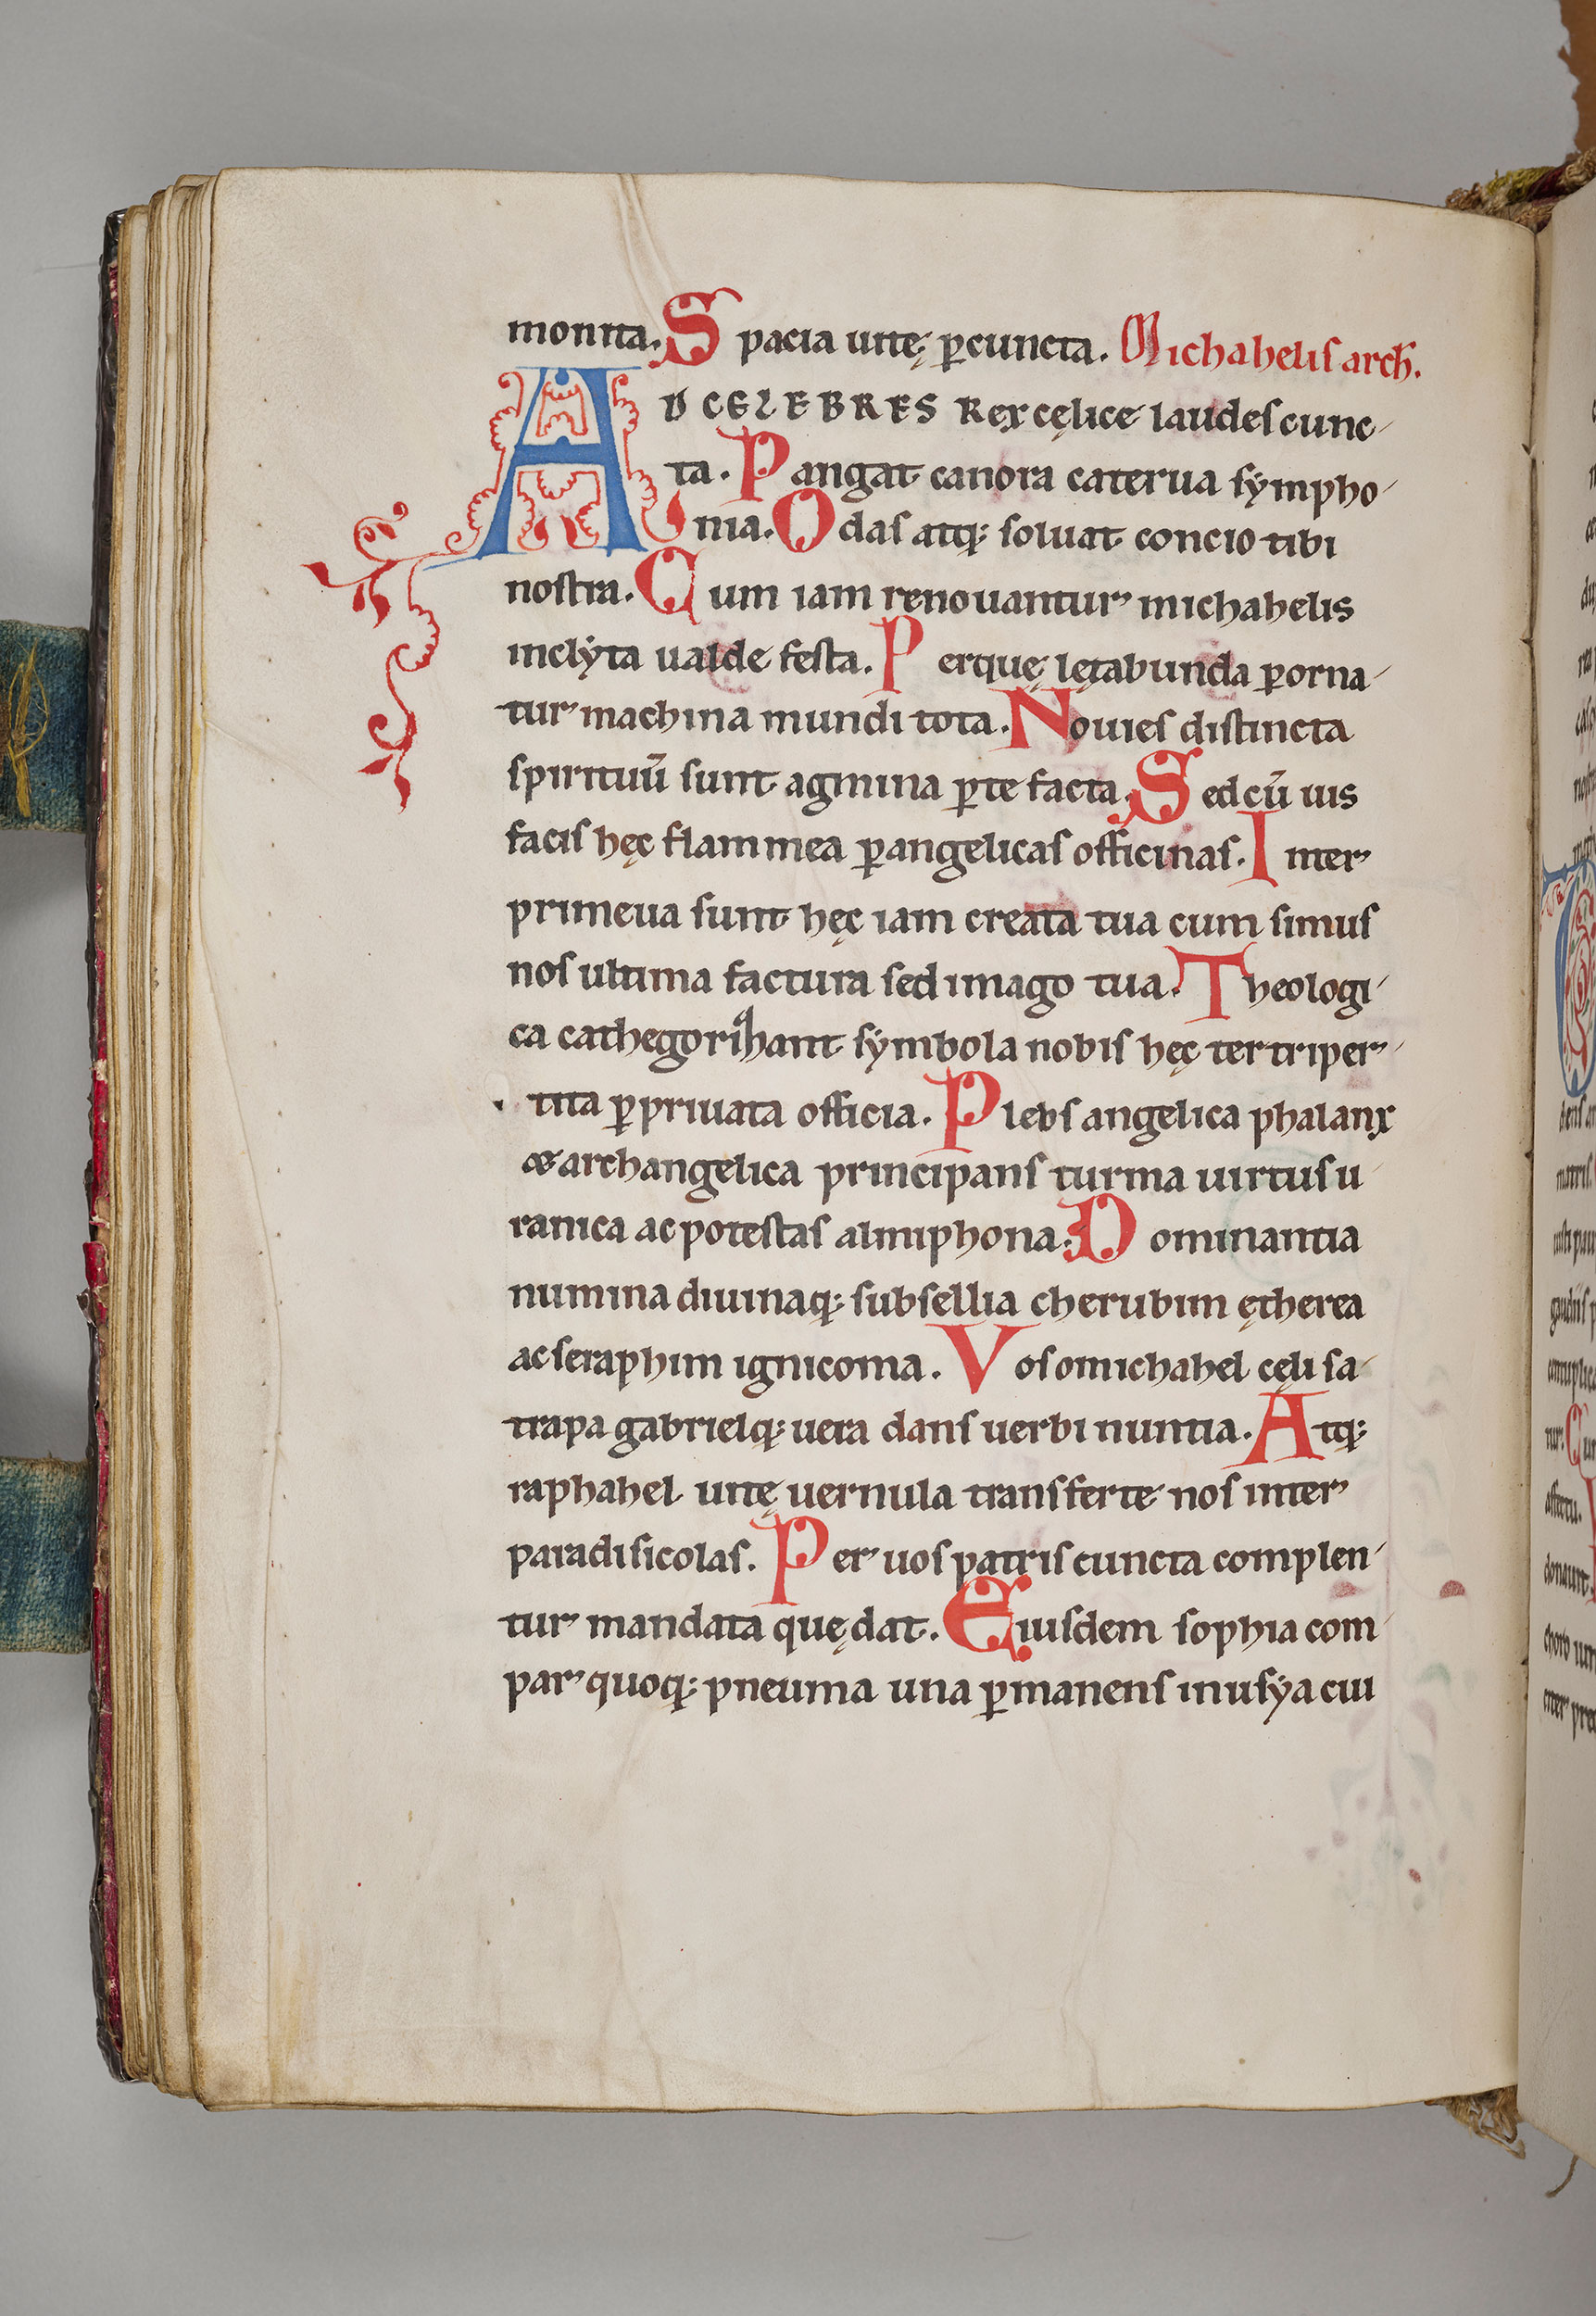 monita. Spacia uitę ꝑcuncta. Michahelis arch̄.
AD CELEBRES Rex cęlice laudes cunc-
ta. Pangat canora caterua sẏmpho-
nia. Odas atq; soluat concio tibi
nostra. Cum iam renouantur michahelis
inclẏta ualde festa. Perquę lętabunda ꝑorna-
tur machina mundi tota. Nouies distincta
spirituū sunt agmina ꝑte facta. Sed cū uis
facis hęc flammea ꝑangelicas officinas. Inter
primeua sunt hęc iam creata tua cum simus
nos ultima factura sed imago tua. Theologi-
ca cathegorihant sẏmbola nobis hęc ter triper-
tita ꝑpriuata officia. Plebs angelica phalanx
& archangelica principans turma uirtus u
ranica ac potestas almiphona. Dominantia
numina diuinaq; subsellia cherubim ętherea
ac seraphim ignicoma. Vos o michahel cęli sa-
trapa gabrielq; uera dans uerbi nuntia. Atq;
raphahel uitę uernula transferte nos inter
paradisicolas. Per uos patris cuncta complen-
tur mandata quę dat. Eiusdem sophia com-
par quoq; pneuma una ꝑmanens inusẏa cui